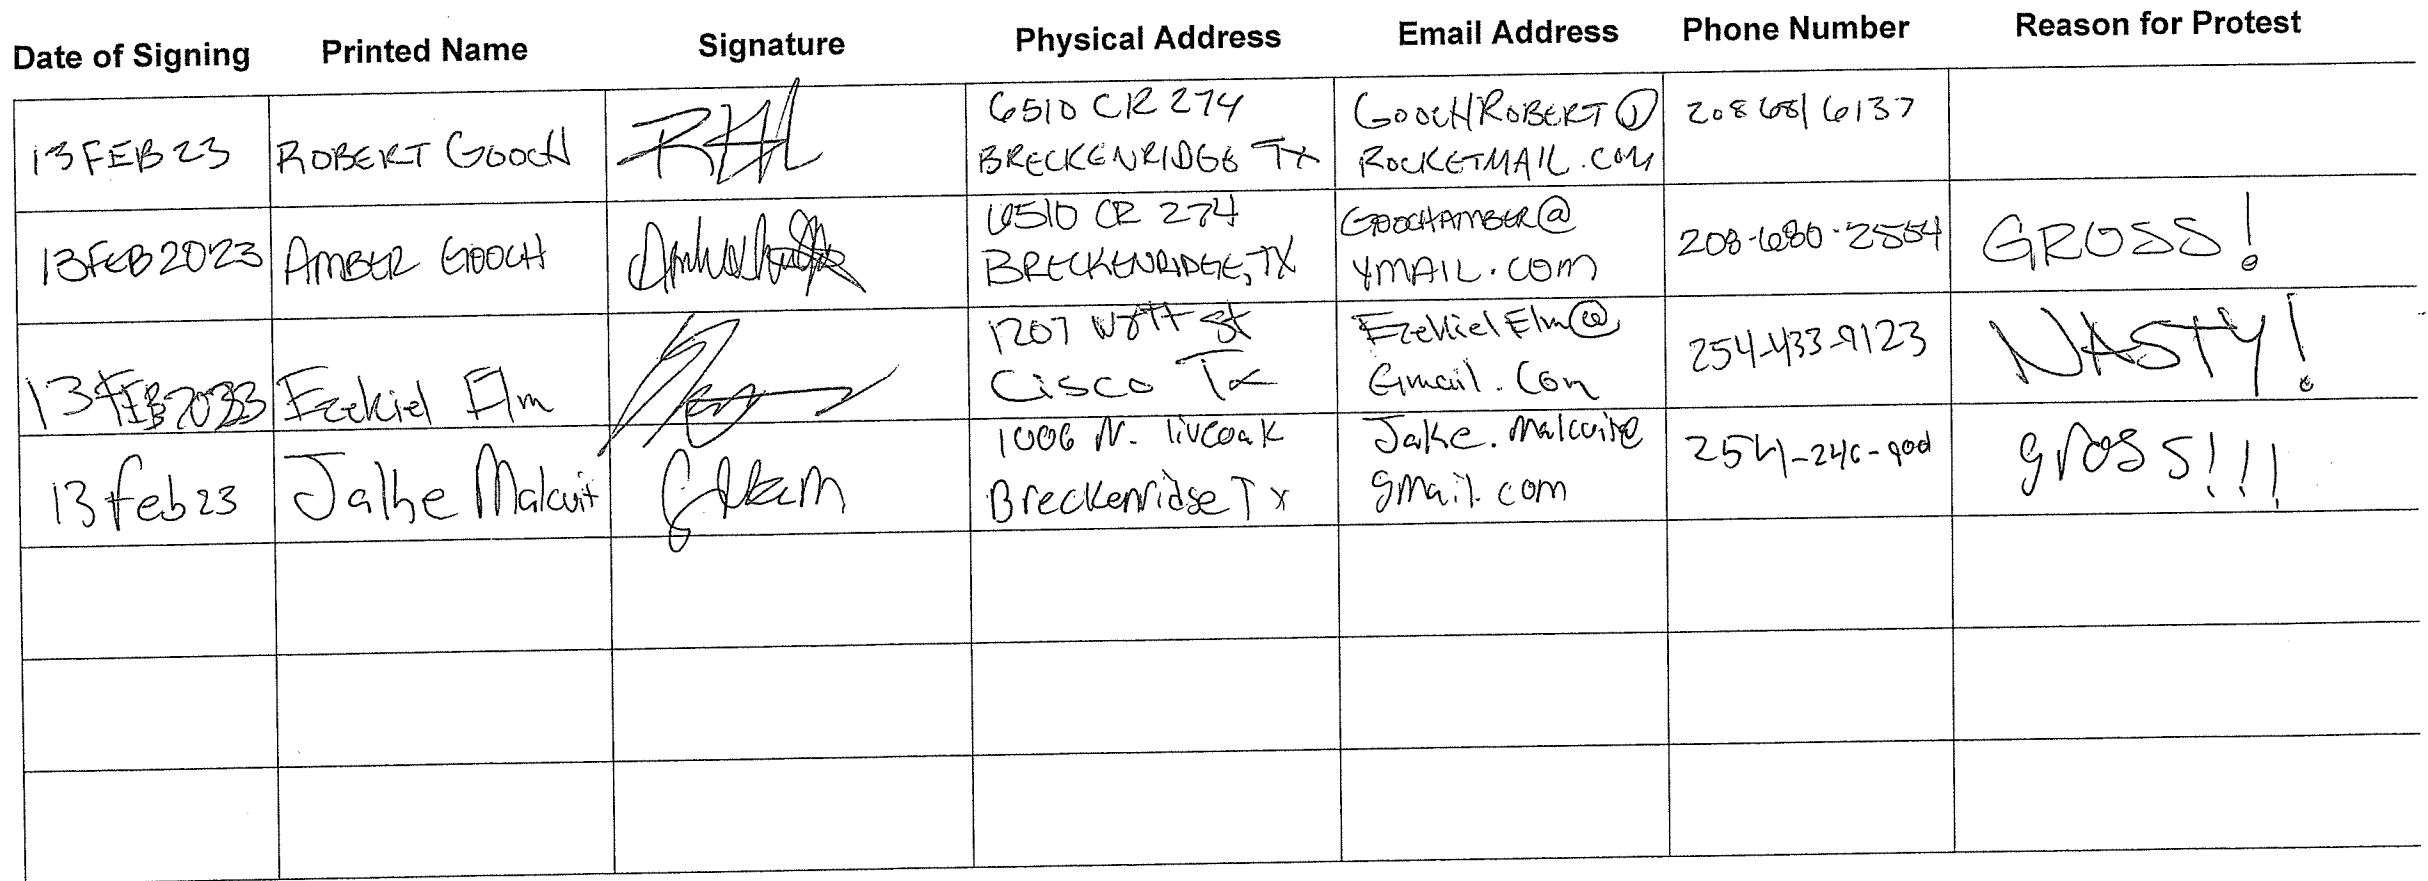 Date of Signing Printed Name Signature Physical Address Email Address Phone Number Reason for Protest
13 FEB 23 ROBERT GOOCH 6510 CR 274 BRECKENRIDGE TX GOOCHROBERT@ ROCKETMAIL.COM 208 681 6137
13 FEB 2023 AMBER GOOCH 6510 CR 274 BRECKENRIDGE, TX GOOCHAMBER@ YMAIL.COM 208-680-2554 GROSS!
13 FEB 2023 Ezekiel Elm 1207 St Cisco Tx EzekielElm@ Gmail.Com 254-433-9123 NASTY!
13 feb 23 Jake Malcuit 1006 N. liveoak Breckenridge Tx Jake.Malcuit@ gmail.com gross!!!